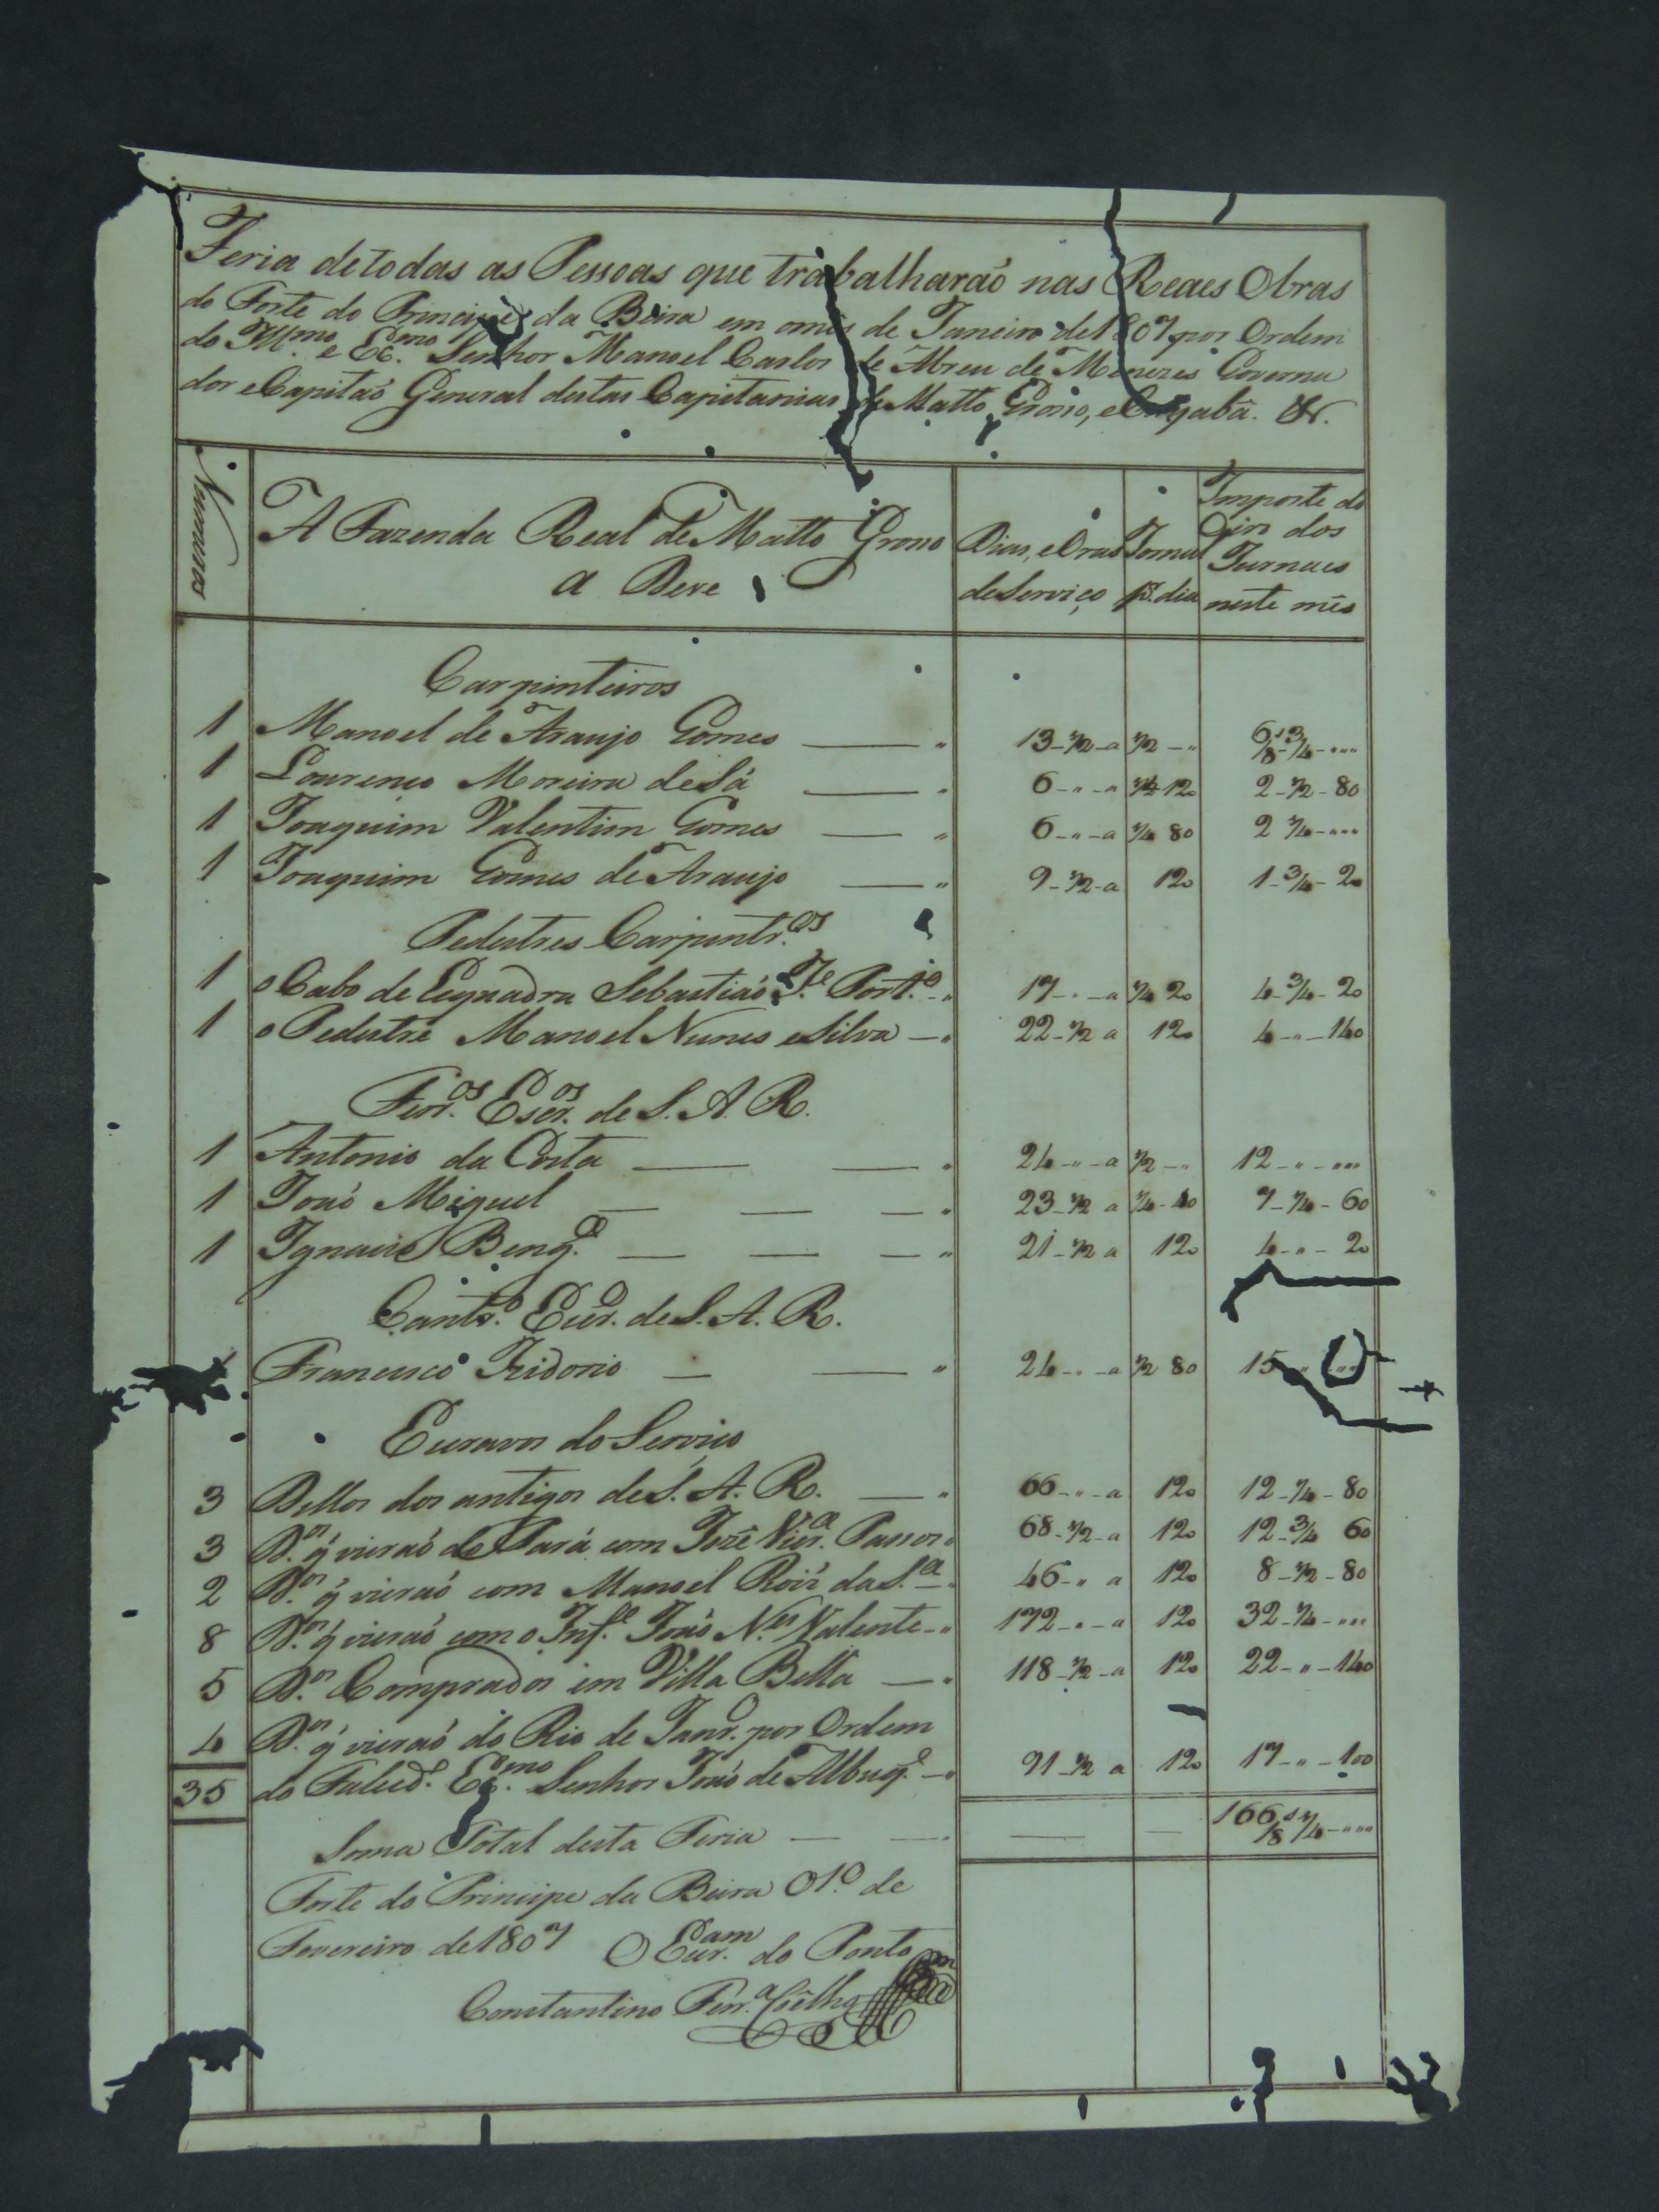 Feria de todas as Pessoas que trabalharaõ nas Reaes Obras
do Forte do Principe da Beira em o mês de Janeiro de 1807 por Ordem
do Illmo. e Exmo. Senhor Manoel Carlos de Abreu de Menezes Governa
dor e Capitaõ General destas Capitanias de Matto Grosso, e Cuyabâ. &.
Numeros
A Fazenda Real de Matto Grosso
a Deve
Dias, e Oras
de Serviço
Jornal
p. dia
Importe do
dos
Jurnaes
neste mês
Carpinteiros
1 Manoel de Araujo Gomes — " 13-1/2-a 1/2-" 6/8s 3/4-"""
1 Lourenço Moreira de Sá — " 6-"-a 1/4 120 2-1/2-80
1 Joaquim Valentim Gomes — " 6-"-a 1/4 80 2 1/4-"""
1 Joaquim Gomes de Araujo — " 9-1/2-a 120 1-3/4-20
Pedestres Carpintr.os
1 o Cabo de Esquadra Sebastiaõ Je. Port.o -" 17-"-a 1/4 20 4-3/4-20
1 o Pedestre Manoel Nunes e Silva -" 22-1/2 a 120 4-"-140
Ferr.os Escr.os de S. A. R.
1 Antonio da Costa — — " 24-"-a 1/2-" 12-"-"""
1 Joaó Miguel — — — " 23-1/2 a 1/4-40 7-1/4-60
1 Ignacio Beng.a — — — " 21-1/2 a 120 4-"-20
Cantr.o Escr.o de S. A. R.
Francisco Izidorio — — " 24-"-a 1/2 80 15
Escravos do Serviço
3 Dellos dos antigos de S. A. R. — " 66-"-a 120 12-1/4-80
3 D.os q̃ vieraó do Pará com Jozê Vier.a Passos 68-1/2-a 120 12-3/4 60
2 D.os q̃ vieraó com Manoel Roiz̃ da S.a -" 46-" a 120 8-1/2-80
8 D.os q̃ vieraó com o Inf.e Joaó N.es Valente -" 172-"-a 120 32-1/4-"""
5 D.os Comprados em Villa Bella — " 118-1/2-a 120 22-"-140
4 D.os q̃ vieraó do Rio de Janr.o por Ordem
35 do Faled.o Exmo. Senhor Joaó de Albuq.e -" 91-1/2 a 120 17-"-100
Soma Total desta Feria — — — — 166/8s 1/4-"""
Forte do Principe da Beira 01.o de
Fevereiro de 1807 O Escr.am do Ponto
Constantino Ferr.a Coêlho